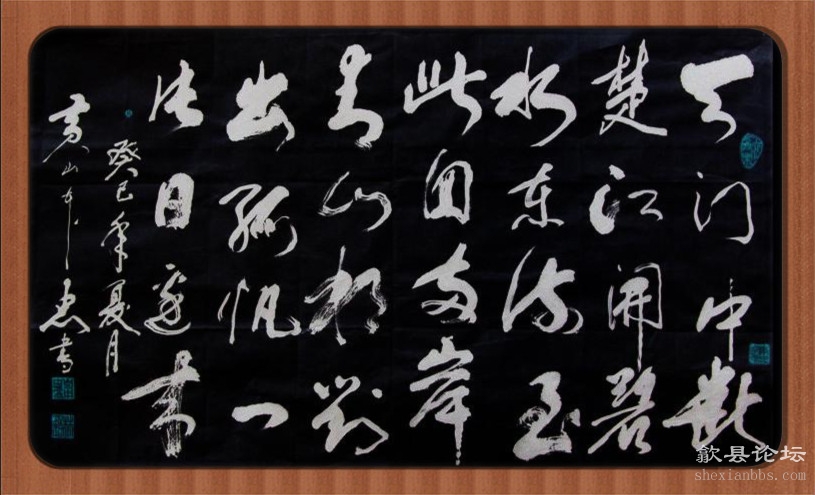 天门中斷
楚江開碧
水东流至
此回两岸
青山相對
出孤帆一
片日边来
癸巳年夏月
黄山 书
歙县论坛
shexianbbs.com